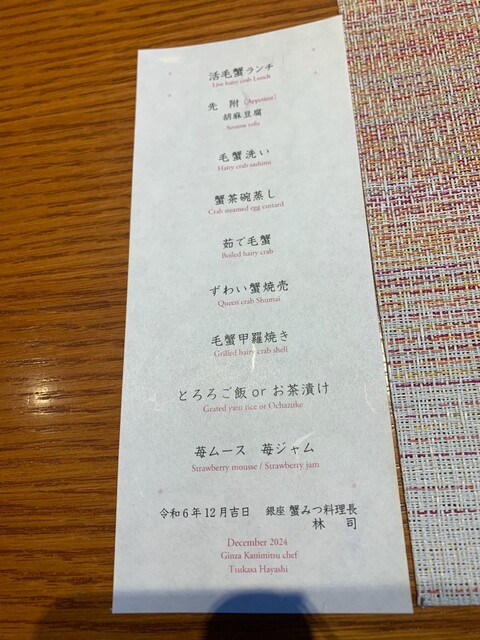 活毛蟹ランチ
Live hairy crab Lunch
先 附 (Appetizer)
胡麻豆腐
Sesame tofu
毛蟹洗い
Hairy crab sashimi
蟹茶碗蒸し
Crab steamed egg custard
茹で毛蟹
Boiled hairy crab
ずわい蟹焼売
Queen crab Shumai
毛蟹甲羅焼き
Grilled hairy crab shell
とろろご飯 or お茶漬け
Grated yam rice or Ochazuke
苺ムース 苺ジャム
Strawberry mousse / Strawberry jam
令和6年12月吉日 銀座 蟹みつ料理長
林 司
December 2024
Ginza Kanimitsu chef
Tsukasa Hayashi